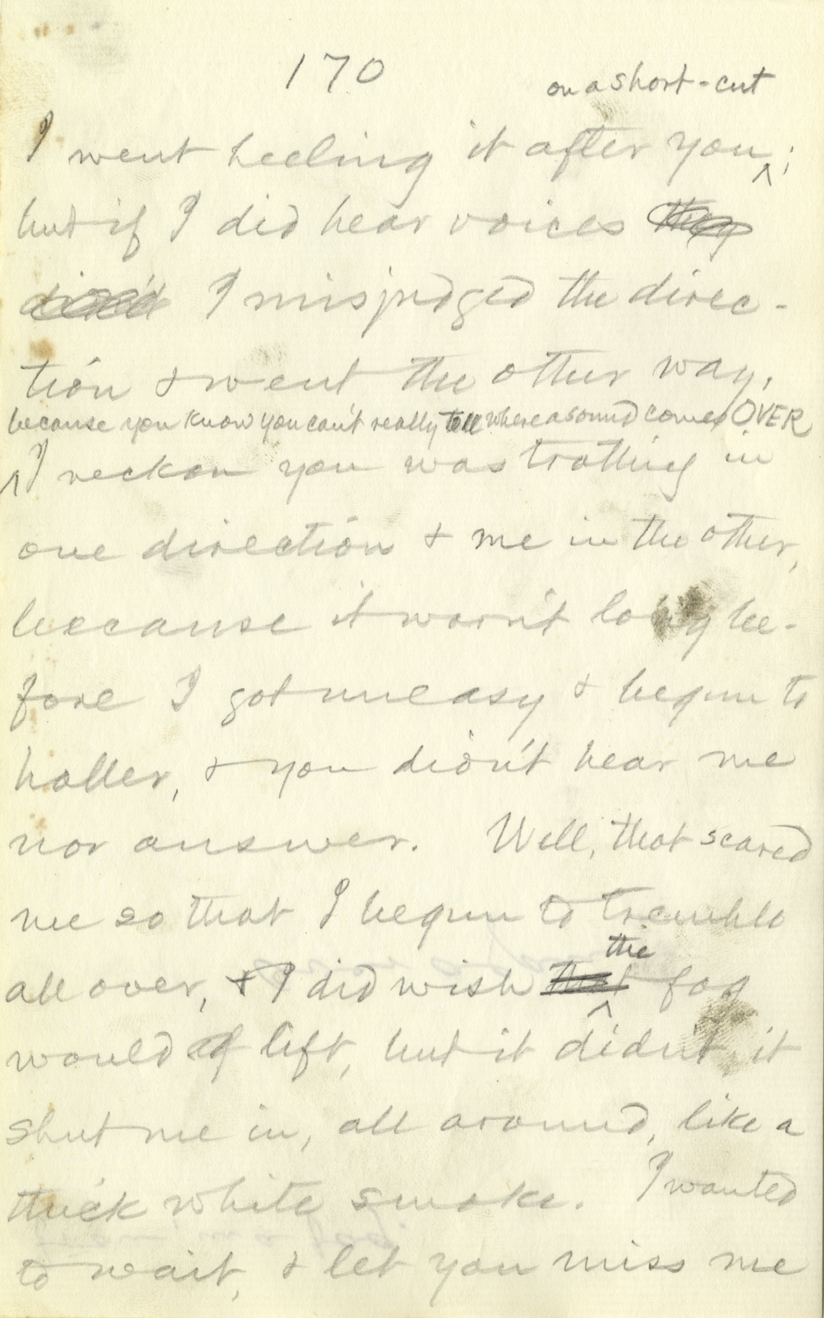 170
on a short-cut
I went heeling it after you^;
but if I did hear voices they
I misjudged the direc-
tion & went the other way,
because you know you can't really tell where a sound comes OVER
^I reckon you was trotting in
one direction & me in the other,
because it warn't long be-
fore I got uneasy & begun to
holler, & you didn't hear me
nor answer. Well, that scared
me so that I begun to tremble
all over, & I did wish that ^ the fog
would of lift, but it didn't, it
shut me in, all around, like a
thick white smoke. I wanted
to wait, & let you miss me